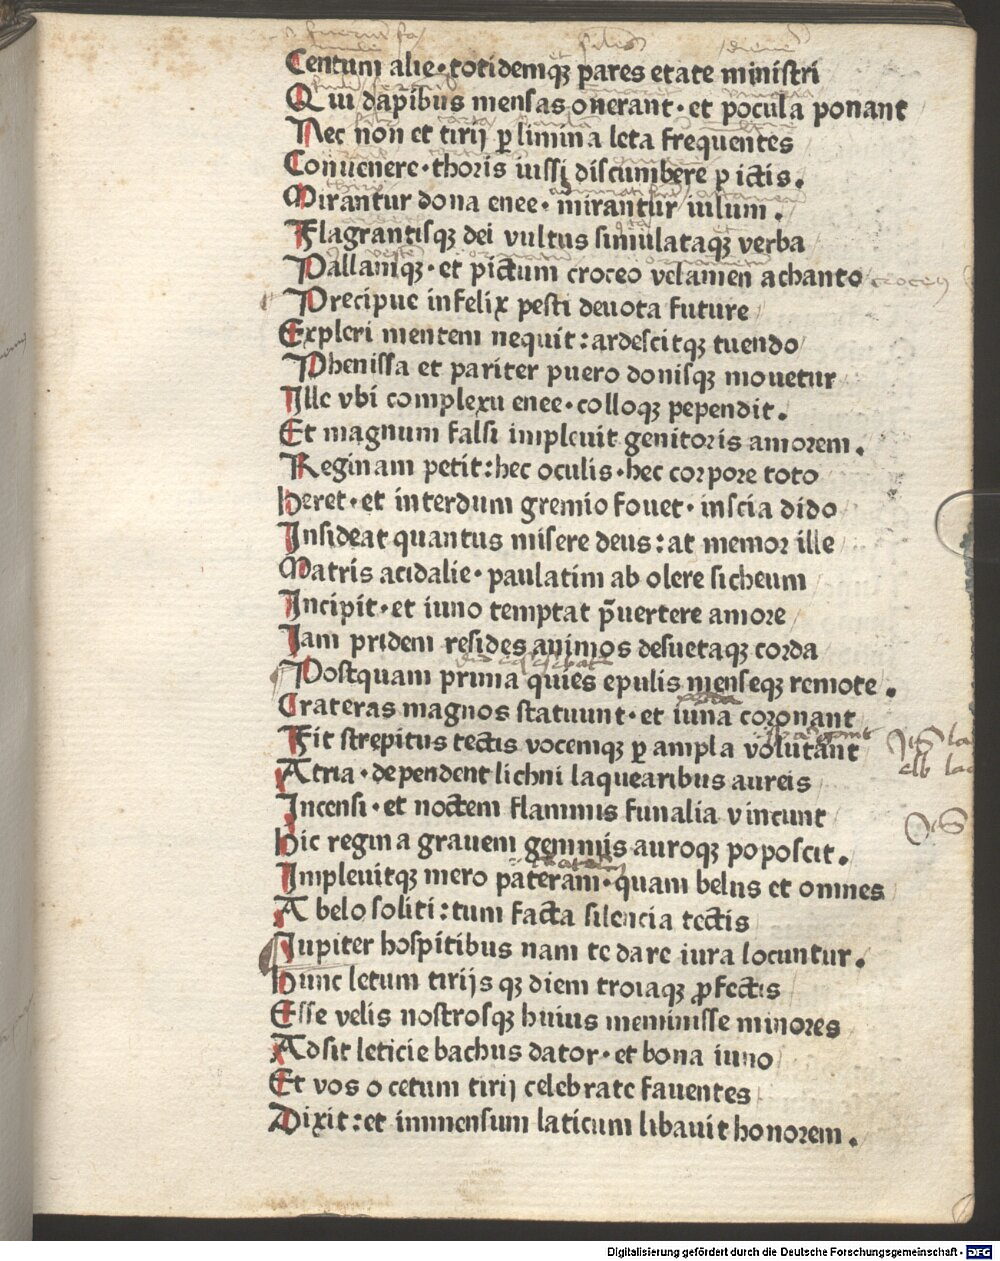 Centum alie · totidemqꝫ pares etate ministri
Qui dapibus mensas onerant · et pocula ponant
Nec non et tirij ꝑ limina leta frequentes
Conuenere · thoris iussi discumbere pictis.
Mirantur dona enee · mirantur iulum.
Flagrantisqꝫ dei vultus simulataqꝫ verba
Pallamqꝫ · et pictum croceo velamen achanto
Precipue infelix pesti deuota future
Expleri mentem nequit : ardescitqꝫ tuendo
Phenissa et pariter puero donisqꝫ mouetur
Ille vbi complexu enee · colloqꝫ pependit.
Et magnum falsi impleuit genitoris amorem.
Reginam petit : hec oculis · hec corpore toto
Heret · et interdum gremio fouet · inscia dido
Insideat quantus misere deus : at memor ille
Matris acidalie · paulatim ab olere sicheum
Incipit · et iuno temptat p̄uertere amore
Jam pridem resides animos desuetaqꝫ corda
Postquam prima quies epulis menseqꝫ remote.
Crateras magnos statuunt · et iuna coronant
Fit strepitus tectis vocemqꝫ ꝑ ampla volutant
Atria · dependent lichni laquearibus aureis
Incensi · et noctem flammis funalia vincunt
Hic regina grauem gemmis auroqꝫ poposcit.
Impleuitqꝫ mero pateram · quam belus et omnes
A belo soliti : tum facta silencia tectis
Jupiter hospitibus nam te dare iura locuntur.
Hunc letum tirijs qꝫ diem troiaqꝫ ꝓfectis
Esse velis nostrosqꝫ huius meminisse minores
Adsit leticie bachus dator · et bona iuno
Et vos o cetum tirij celebrate fauentes
Dixit : et immensum laticum libauit honorem.
Digitalisierung gefördert durch die Deutsche Forschungsgemeinschaft - DFG